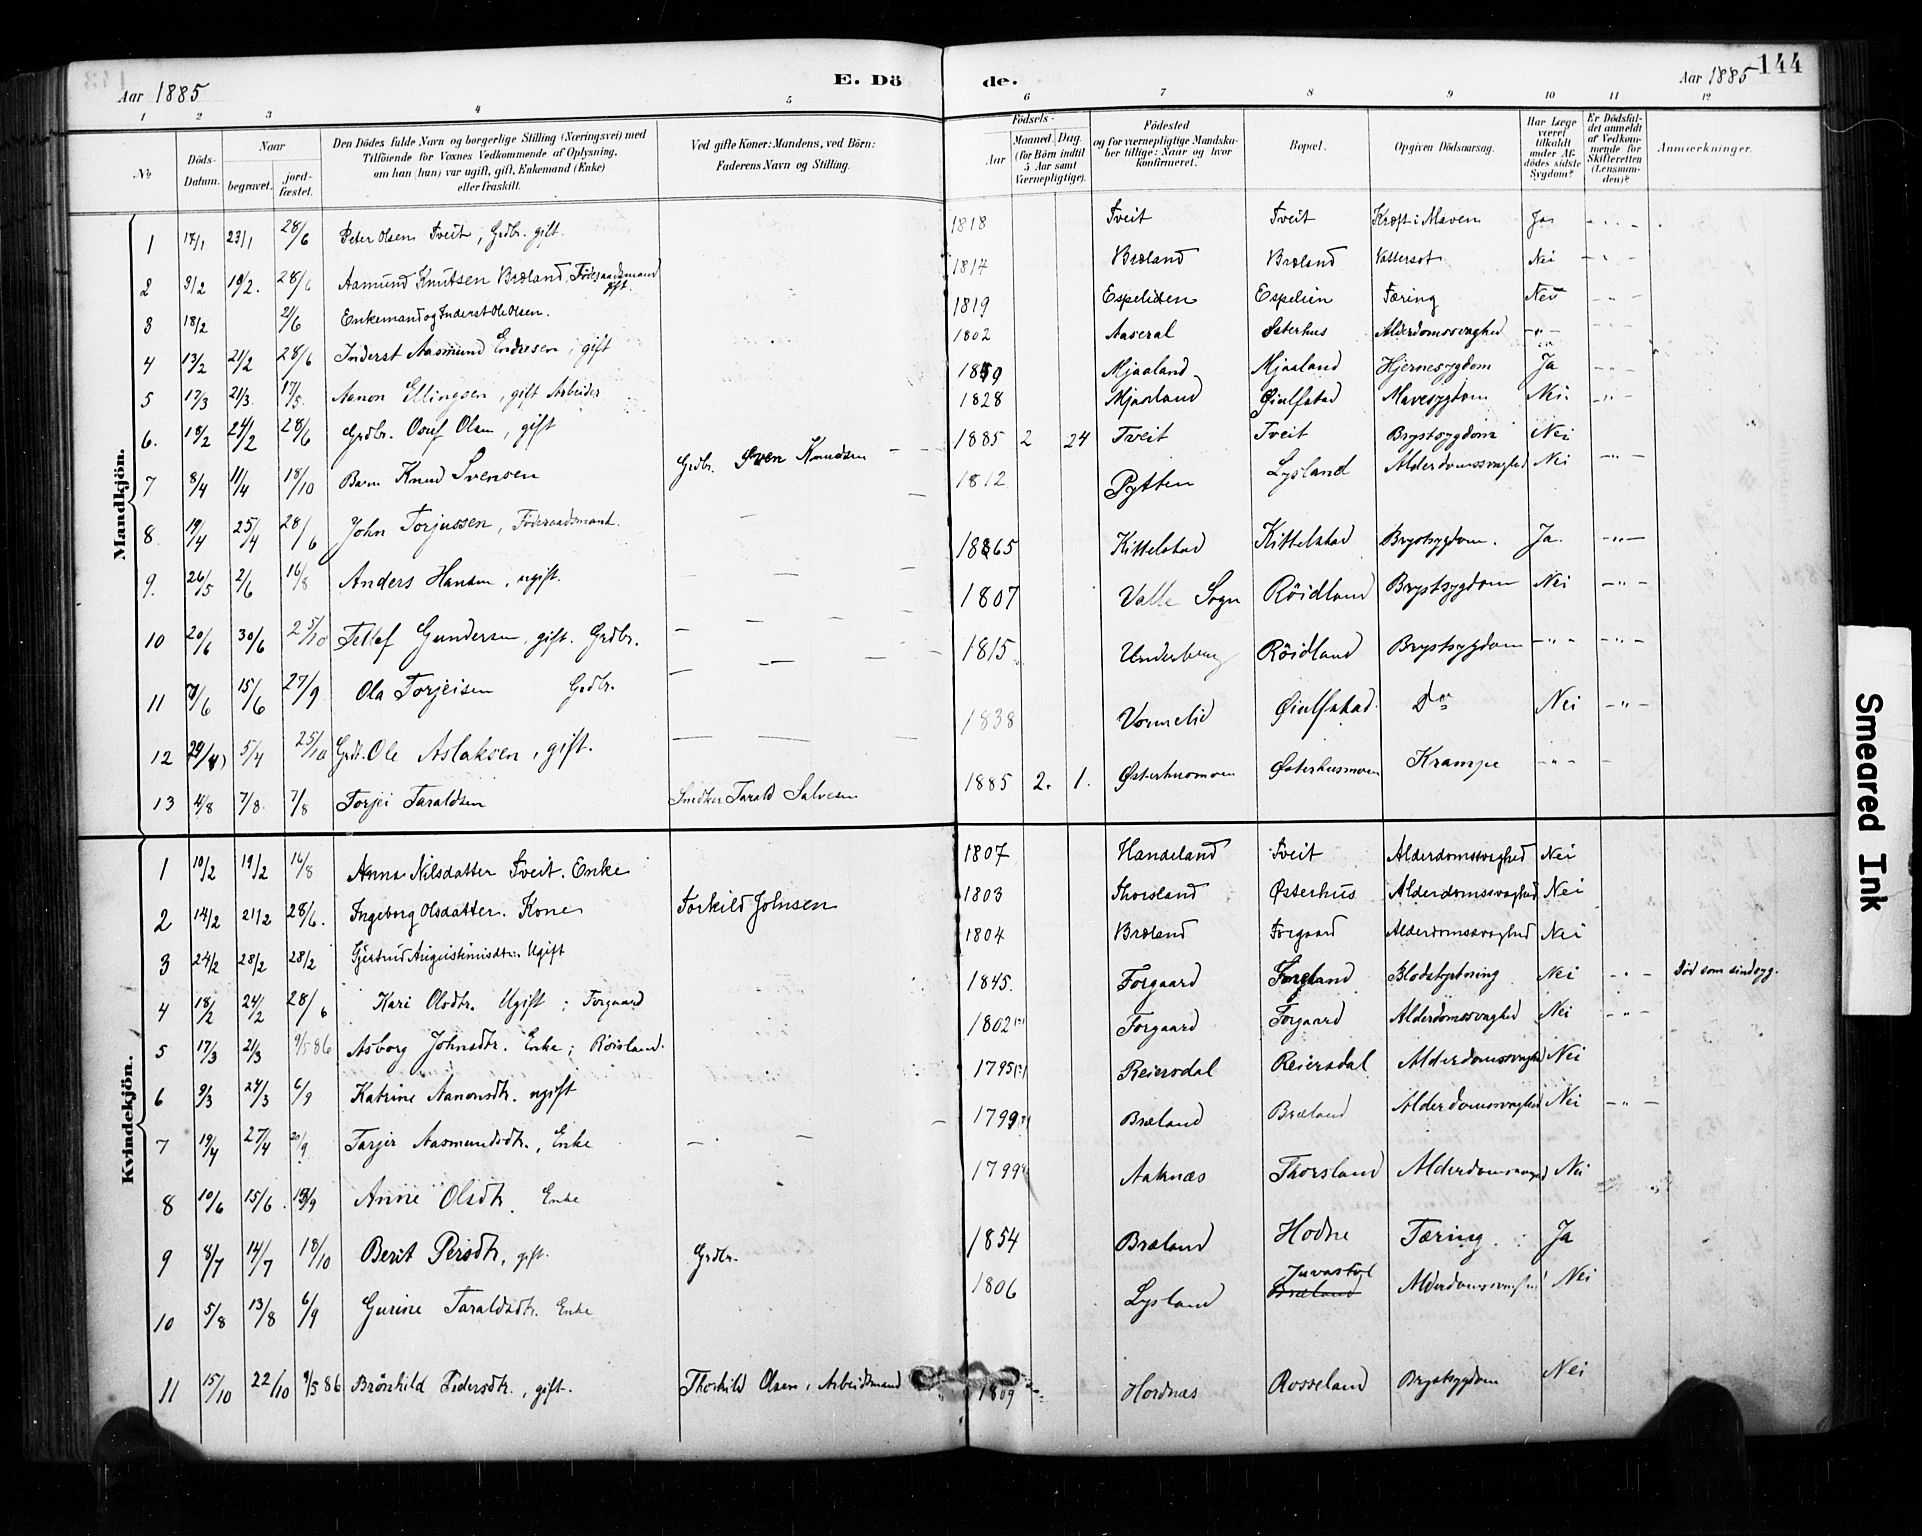 Aar 1885
E. Dö
de.
Aar 1885
144
1 2 3 4 5 6 7 8 9 10 11 12
No
Döds-Datum.
Naar
begravet.
jordfæstet.
Den Dödes fulde Navn og borgerlige Stilling (Næringsvei) med Tilföiende for Voxnes Vedkommende af Oplysning, om han (hun) var ugift, gift, Enkemand (Enke) eller fraskilt.
Ved gifte Koner: Mandens, ved Börn: Faderens Navn og Stilling.
Födsels-
Aar
Maaned. Dag.
(for Börn indtil 5 Aar samt Værnepligtige).
Födested og for værnepligtige Mandskaber tillige: Naar og hvor konfirmeret.
Bopæl.
Opgiven Dödsaarsag.
Har Læge været tilkaldt under Afdödes sidste Sygdom?
Er Dödsfaldet anmeldt af Vedkommende for Skifteretten (Lensmanden)?
Anmærkninger.
Mandkjön.
1 17/1 23/1 28/6 Peter Olsen Tveit, Grdbr. gift. 1818 Tveit Tveit Kræft i Maven Ja
2 3/2 10/2. 28/6 Aamund Knutsen Bræland, Föderaadsmand gift. 1817 Bræland Bræland Vattersot Nei
3 18/2 21/6 Enkemand og Inderst Ole Olsen. 1819 Espelien Espelien Tæring Nei
4 13/2 21/2 28/6 Inderst Aasmund Endresen, gift 1802 Aaseral Østerhus Alderdomssvaghed -"-
5 17/3 21/3. 17/5. Aanon Ellingsen, gift Arbeider 1859 Mjaaland Mjaaland Hjernesygdom Ja
6. 18/2 24/2 28/6 Grdbr. Osuf Olsen, gift 1828 Mjaaland Øiulfstad Mavesygdom Nei
7 8/4 11/4 18/10 Barn Knud Svensen Grdbr. Sven Knudsen 1885 2 24 Tveit Tveit Brystsygdom Nei
8. 19/4 25/4 28/6 John Torjussen, Föderaadsmand. 1812 Pytten Lysland Alderdomssvaghed Nei
9. 26/5 2/6 16/8 Anders Hansen, ugift. 1865 Kittelstad Kittelstad Brystsygdom. Ja.
10 20/6 30/6 25/10 Tellef Gundersen, gift. Grdbr. 1807 Valle Sogn Röidland Brystsygdom Nei
11 7/6 15/6 27/9 Ola Torjeisen Grdbr. 1815 Underberg Röidland Brystsygdom -"-
12 29/4 5/4 25/10 Grdbr. Ole Aslaksen, gift. 1838 Vonnelid Øiulfstad. Do Nei
13 4/8 7/8. 7/8 Torjei Taraldsen Snedker Tarald Salvesen 1885 2. 1. Østerhusmoen Østerhusmoen Krampe -"-
Kvindekjön.
1 10/2 19/2 16/8 Anna Nilsdatter Tveit. Enke 1807 Handeland Tveit Alderdomssvaghed Nei
2 14/2 21/2 28/6. Ingeborg Olsdatter. Kone Torkild Johnsen 1803 Thorsland Østerhus Alderdomssvaghed Nei
3 24/2 28/2 28/2 Gjertrud Augustinusdtr. Ugift 1804 Bræland Forgaard Alderdomssvaghed Nei
4 18/2 24/2 28/6 Kari Olsdtr. Ugift; Forgaard 1845. Forgaard Blodstyrtning Nei Död som sindsyg.
5 17/3 21/3 9/5 86 Asborg Johnsdtr. Enke; Röisland. 1802 Forgaard Forgaard Alderdomssvaghed Nei
6 9/3 24/3 6/9 Katrine Aanonsdtr. ugift 1795 Reiersdal Reiersdal Alderdomssvaghed Nei
7 19/4 27/4 20/9 Tarjer Aasmundsdtr., Enke 1799 Bræland Bræland Alderdomssvaghed Nei
8 10/6 15/6. 13/9 Anne Olsdtr. Enke 1799 Aaknæs Thorsland Alderdomssvaghed Nei
9 8/7 14/7 18/10 Berit Persdtr, gift. Grdbr. 1854 Bræland Hodne Tæring. Ja
10 5/8 13/8 6/9 Gurine Taraldsdtr. Enke 1806 Lysland Juvastøl Bræland Alderdomssvaghed Nei
11 15/10 22/10 9/5 86 Brönhild Sidersdtr., gift. Thorkild Olsen, Arbeidsmand 1809 Hordnæs Rosseland Brystsygdom Nei
Smeared Ink